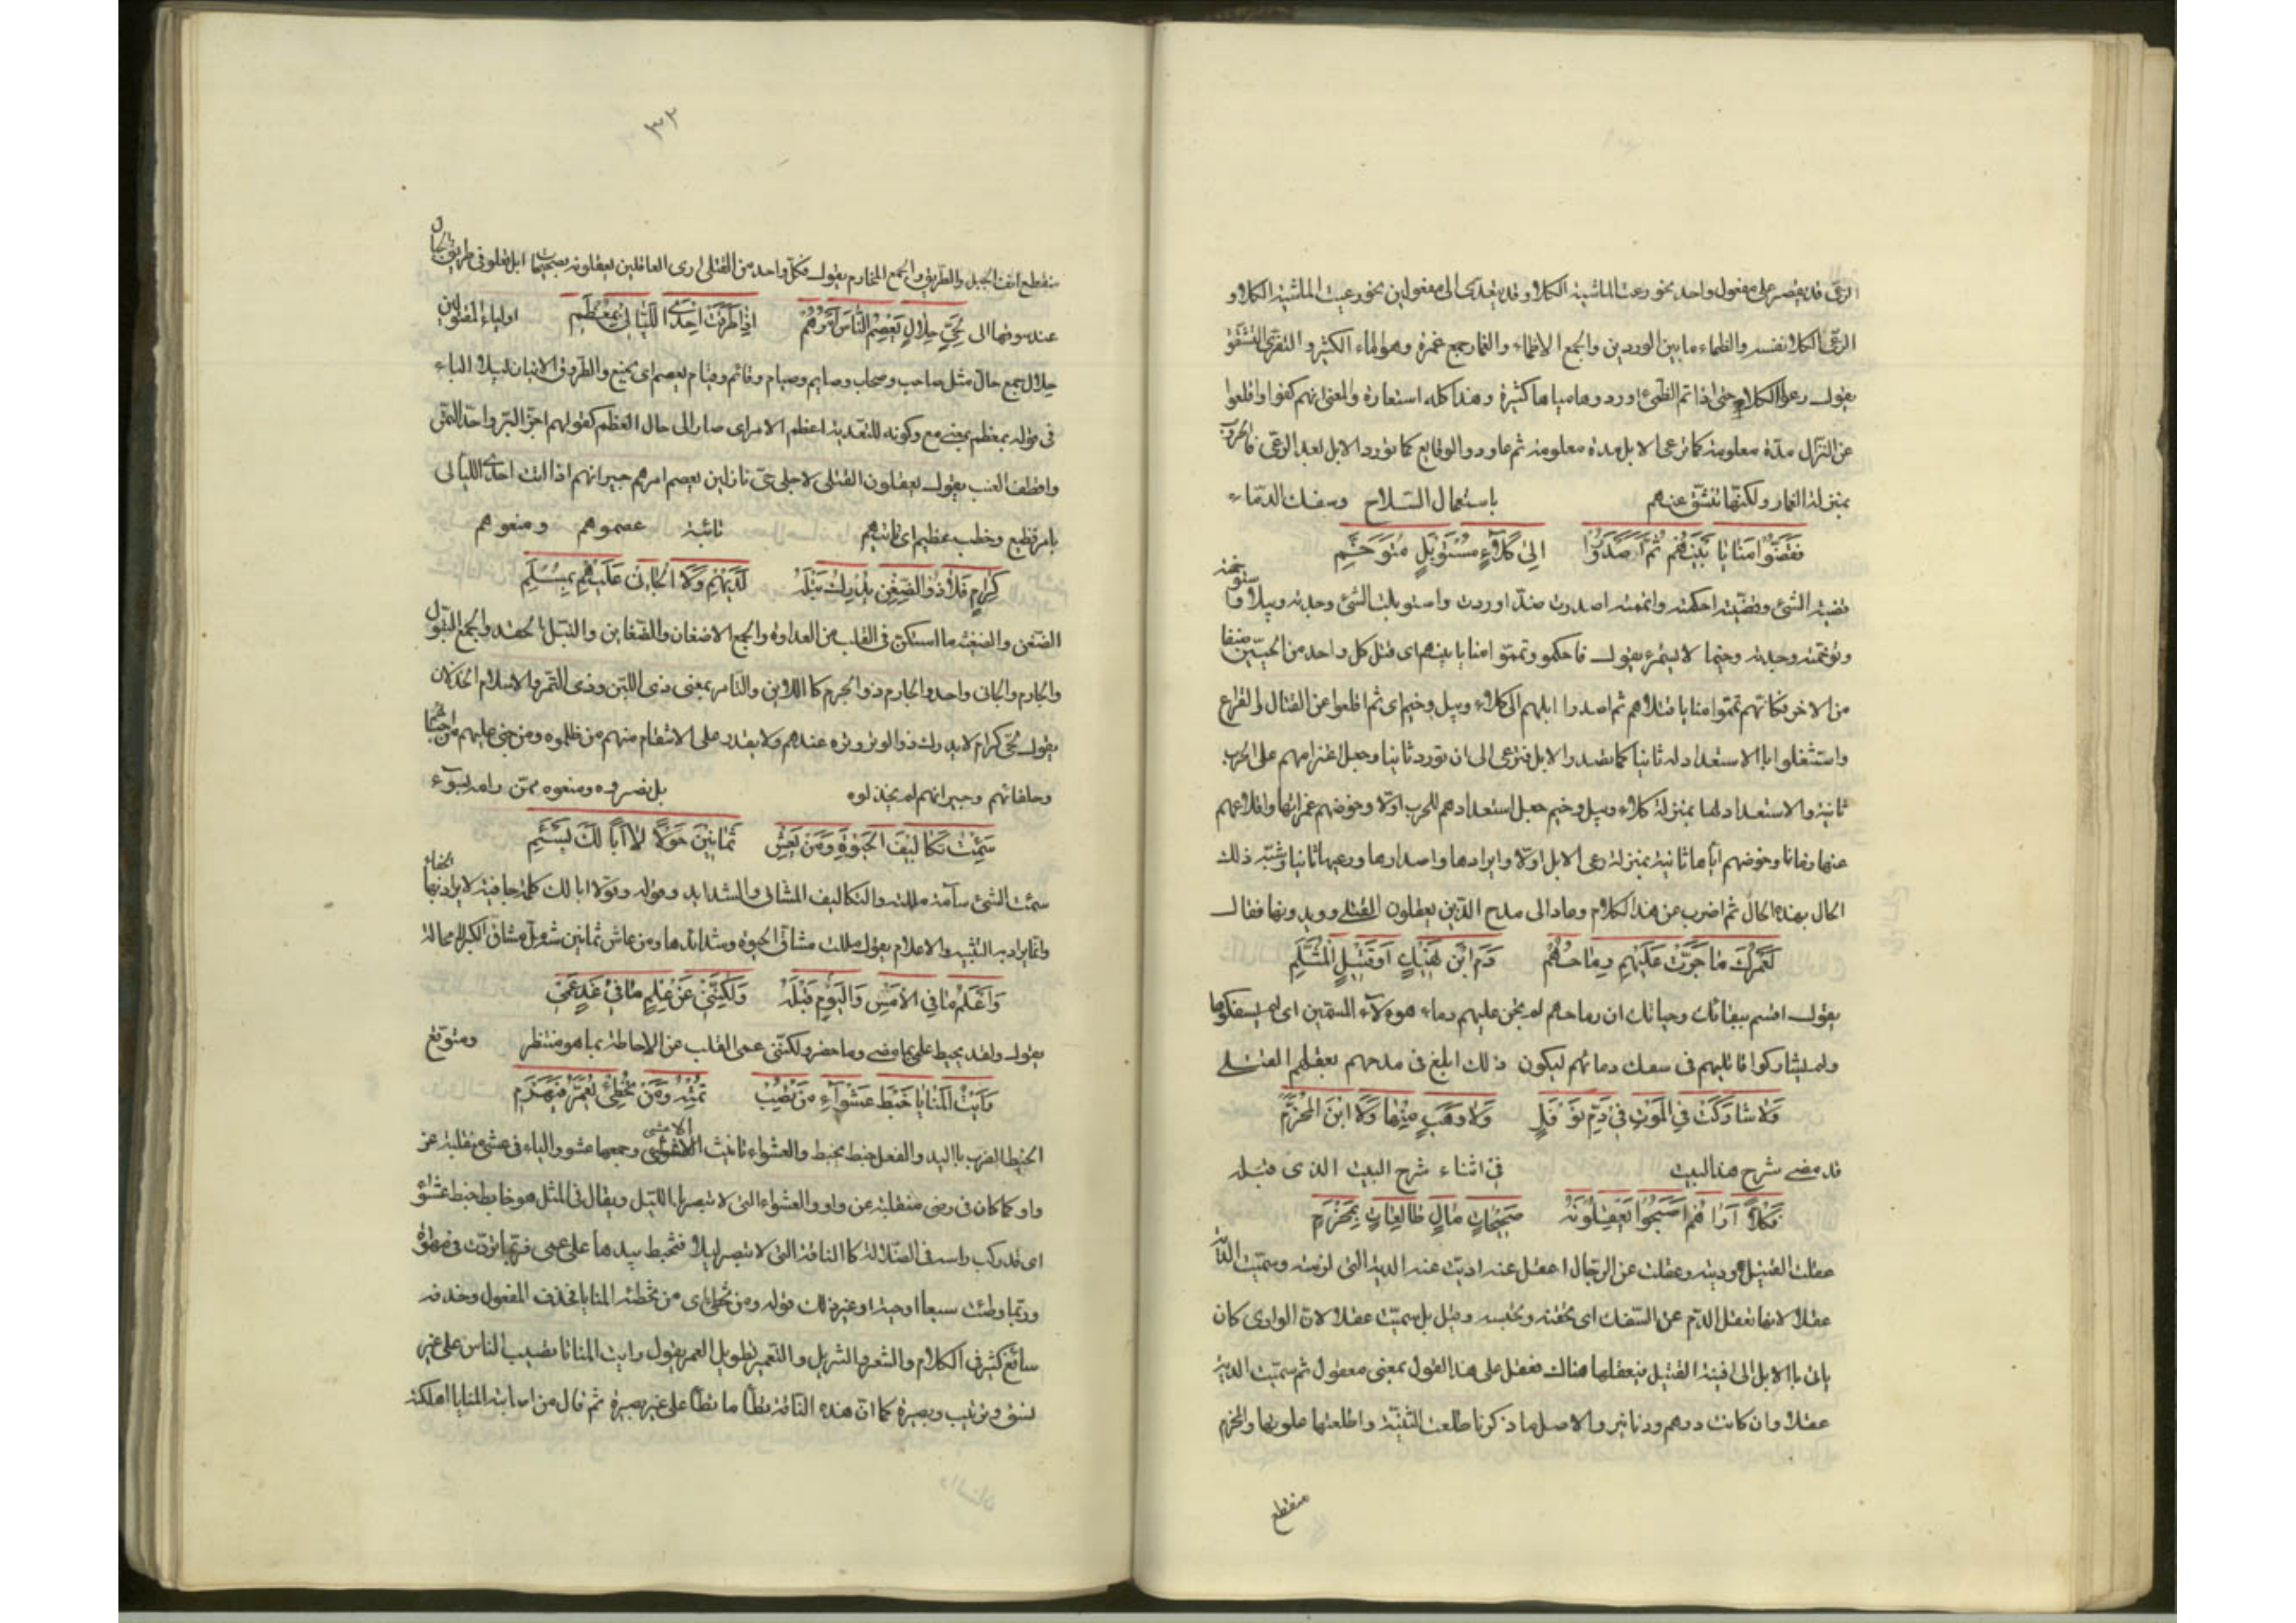 الرعى قد يقصر على مفعول واحد نحو رعت الماشية الكلاو قد يتعدى الى مفعولين نحو رعيت الماشية الكلاو
الرعى الكلا نفسه والظماء ما بين الوردين والجمع الاظماء والغمار جمع غمرة وهو الماء الكثير و التفرى التشقق
يقول رعوا الكلا حتى اذا تم الظمئ اوردوها مياها كثيرة وهذا كله استعارة والمعنى انهم كفوا واقلعوا
عن النزال مدة معلومة كما ترعى الابل مدة معلومة ثم عاودوا الوقايع كما تورد الابل بعد الرعى فالحروب
بمنزلة الغمار ولكنها تنشق عنهم باستعمال السلاح وسفك الدماء
فَقَضَّوْا مَنَايَا بَيْنَهُمْ ثُمَّ اَصْدَرُوْا اِلىٰ كَلَاءٍ مُسْتَوْبَلٍ مُتَوَخَّمِ
قضيت الشئ وقضّيته احكمته واتممته اصدرت ضدّ اوردت واستوبلت الشئ وجدته وبيلا واستوخمته
وتوخمته وجدته وخيما لا يستمرء يقول فاحكمو وتمموا منايا بينهم اى قتل كل واحد من الحيين صنفا
من الاخر فكانهم تمموا منايا قتلاهم ثم اصدروا ابلهم الى كلاء وبيل وخيم اى ثم اقلعوا عن القتال والقراع
واشتغلوا باالاستعداد له ثانيا كما تصدر الابل فترعى الى ان تورد ثانيا وجعل اعتزامهم على الحرب
ثانية والاستعداد لها بمنزلة كلاء وبيل وخيم جعل استعدادهم للحرب اولا وخوضهم غمراتها واقلاعهم
عنها زمانا وخوضهم اياها ثانية بمنزلة رعى الابل اولا وايرادها واصدارها ورعيها ثانيا وشبّه ذلك
الحال بهذه الحال ثم اضرب عن هذا الكلام وعاد الى مدح الذين يعقلون القتلى ويدونها فقال
لَعَمْرُكَ مٰا جَرَّتْ عَلَيْهِمِ رِمٰاحُهُمْ دَمَ ابْنِ نَهِيْكٍ اَوْ قَتِيْلِ الْمُثَلَّمِ
يقول اقسم ببقائك وحياتك ان رماحهم لم تجن عليهم دماء هوءلآء المسمّين اى لم يسفكوها
ولم يشاركوا قاتليهم فى سفك دمائهم ليكون ذلك ابلغ فى مدحهم بعقلهم القتلى
وَلٰا شٰارَكَتْ فِي الْمَوْتِ فِيْ دَمِ نَوْفَلٍ وَلٰا وَهَبٍ مِنْهٰا وَلَا ابْنَ الْمُخَزَّمِ
قد مضى شرح هذا لبيت فى اثناء شرح البيت الذى قبله
فَكُلّاً اَرٰاهُمْ اَصْبَحُوْا يَعْقِلُوْنَهُ صَحِيْحٰاتِ مٰالٍ طٰالِعٰاتٍ بِمَخْرَمِ
عقلت القتيل وديته وعقلت عن الرجل اعقل عنه اديت عنه الدية التى لزمته وسميت الدية
عقلا لانها تعقل الدّم عن السّفك اى تحقنه وتحبسه وقيل بل سميّت عقلا لانّ الوادى كان
ياتى باالابل الى افنية القتيل فيعقلها هناك فعقل على هذا القول بمعنى معقول ثم سميّت الديّة
عقلا وان كانت درهم ودنانير والاصل ما ذكرنا طلعت الثنيّة واطلعتها علوتها والمخرم
منقطع
٣٢
منقطع انف الجبل والطريق والجمع المخارم يقول فكل واحد من القتلى ارى العاقلين يعقلونه بصحيحات ابل تعلو فى طريق الجبال
عند سوقها الى لِحَيٍّ حِلٰالٍ يَعْصِمُ النّٰاسَ اَمْرُهُمْ اِذٰا طَرَقَتْ اِحْدَى اللَّيٰالِيْ بِمُعْظَمِ اولياء المقتولين
حِلال جمع حالّ مثل صاحب وصحاب وصايم وصيام وقائم وقيام يعصم اى يمنع والطروق الاتيان ليلا الباء
فى قوله بمعظم بمعنى مع وكونه للتعدية اعظم الامراى صار الى حال العظم كقولهم اجزّ البرّ واجدّ التمر
واقطف العنب يقول يعقلون القتلى لاجل حىّ نازلين يعصم امرهم جيرانهم اذا اتت احدى الليالى
بامر فظيع وخطب عظيم اى نائبهم نائبة عصموهم ومنعوهم
كِرٰامٍ فَلٰا ذُو الضِّغْنِ يُدْرِكُ تَبْلَهُ لَدَيْهِمِ وَلَا الْجٰانِىْ عَلَيْهِمْ بِمُسْلَمِ
الضغن والضغينة ما استكن فى القلب من العداوة والجمع الاضغان والضغاين والتبل الحقد والجمع التبول
والجارم والجانى واحد والجارم ذو الجرم كا اللابن والتامر بمعنى ذى اللبن وذى التمر والاسلام الخذلان
يقول لحىّ كرام لا يدرك ذو الوتر وتره عندهم ولا يقدر على الانتقام منهم من ظلموه ومن جنى عليهم من
وحلفائهم وجيرانهم لم يخذلوه بل نصروه ومنعوه ممّن رامه بسوء
سَئِمْتُ تَكٰالِيْفَ الْحَيٰوةِ وَمَنْ يَعِشْ ثَمٰانِيْنَ حَوْلاً لٰا اَبٰا لَكَ يَسْئَمِ
سئمت الشئ سآمة مللته والتكاليف المشاق والشدايد وقوله لا ابا لك كلمة جافية لا يراد بها الجفاء
وانما يراد به التنبيه والاعلام يقول مللت مشاق الحيوة وشدائدها ومن عاش ثمانين سنة ملّ مشاق الكبر لا محالة
وَاَعْلَمُ مٰا فِي الْاَمْسِ وَالْيَوْمِ قَبْلَهُ وَلٰكِنَّنِيْ عَنْ عِلْمِ مٰا فِيْ غَدٍ عَمِيْ
يقول ولقد يحيط علمى بما مضى وما حضر ولكننى عمى القلب عن الاحاطة بما هو منتظر ومتوقع
رَاَيْتُ الْمَنٰايٰا خَبْطَ عَشْوٰاءِ مَنْ تُصِبْ تُمِتْهُ وَمَنْ تُخْطِئْ يُعَمَّرْ فَيَهْرَمِ
الخبط الضرب باليد والفعل خبط يخبط والعشواء تانيث الاعشى وجمعها عشو والياء فى عشى منقلبة عن
واو كما كان فى رضى منقلبة عن واو والعشواء التى لا تبصر باالليل ويقال فى المثل هو خابط خبط عشواء
اى قد ركب راسه فى الضّلالة كا الناقة التى لا تبصر ليلا فتخبط بيدها على عمى فربّما تردّت فى مهواة
وربّما وطئت سبعا اوحيّة او غير ذلك قوله ومن تخطئ اى من تخطئه المنايا فحذف المفعول وحذفه
سائغ كثير فى الكلام والشعر والتنزيل والتعمير تطويل العمر يقول رايت المنايا تصيب الناس على غير
نسق وترتيب وبصيرة كما انّ هذه الناقة تطأ ما تطأ على غير بصيرة ثم قال من اصابته المنايا اهلكته